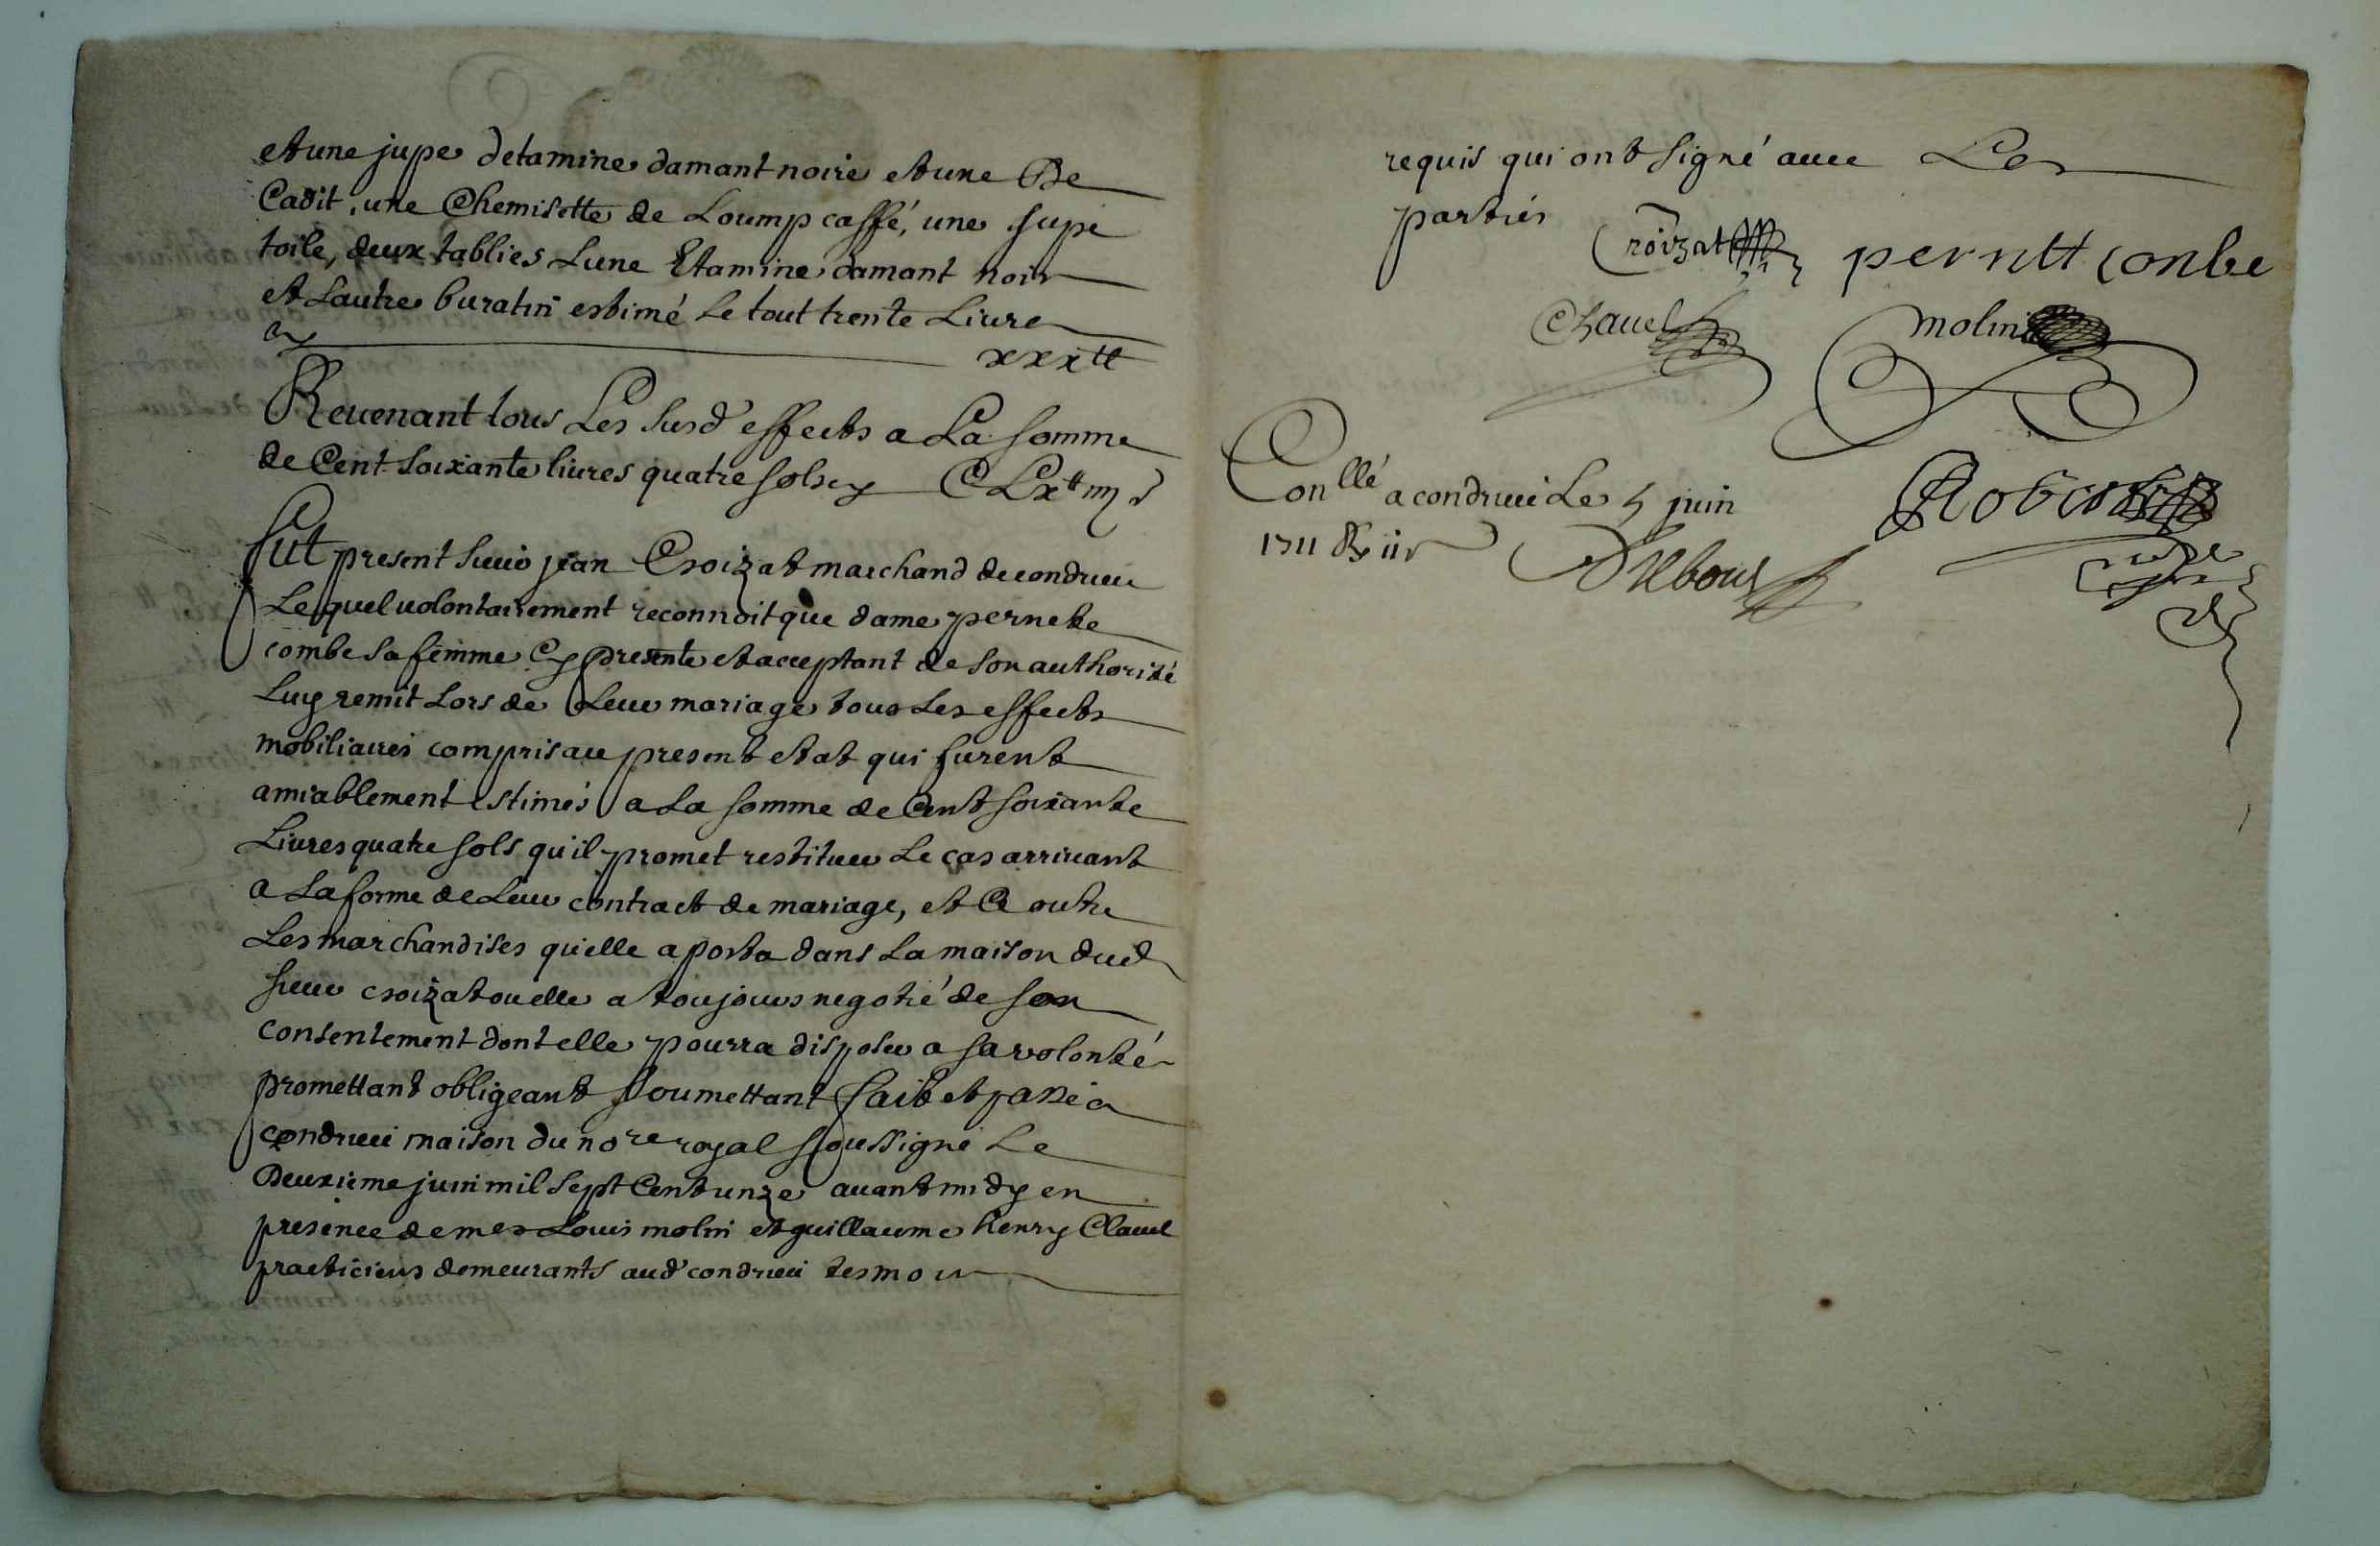 et une jupe detamine damant noire et une De
Cadit, une Chemisette de Loump caffé, une jupe
toile, deux tablies Lune Etamine damant noir
et Lautre buratin estimé Le tout trente Livres
cy xxx tt
Revenant tous Les susd effects a La somme
de Cent soixante livres quatre sols cy CLx tt iiij s
Fut present sieur jean Croizat marchand de condrieu
Lequel volontairement reconnoit que dame pernete
combe sa femme Cy presente et acceptant de son authorité
Luy remit Lors de Leur mariage tous Les effects
mobiliaires compris au present etat qui furent
amiablement estimés a La somme de Cent soixante
Livres quatre sols qu'il promet restituer Le cas arrivant
a La forme de Leur contract de mariage, et Ce outre
Les marchandises qu'elle aporta dans La maison dud
sieur croizat ou elle a toujours negotié de son
consentement dont elle pourra disposer a sa volonté
promettant obligeant soumettant fait et passé a
condrieu maison du no re royal soussigné Le
Deuxieme juin mil sept Cent unze avant midy en
presence de mes Louis molin et guillaume henry Clavel
practiciens demeurants aud condrieu tesmoins
requis qui ont signé avec Les
parties
Croizat pernett conbe
Clavel molin
Con llé a condrieu Le 5 juin
1711 Dubouf